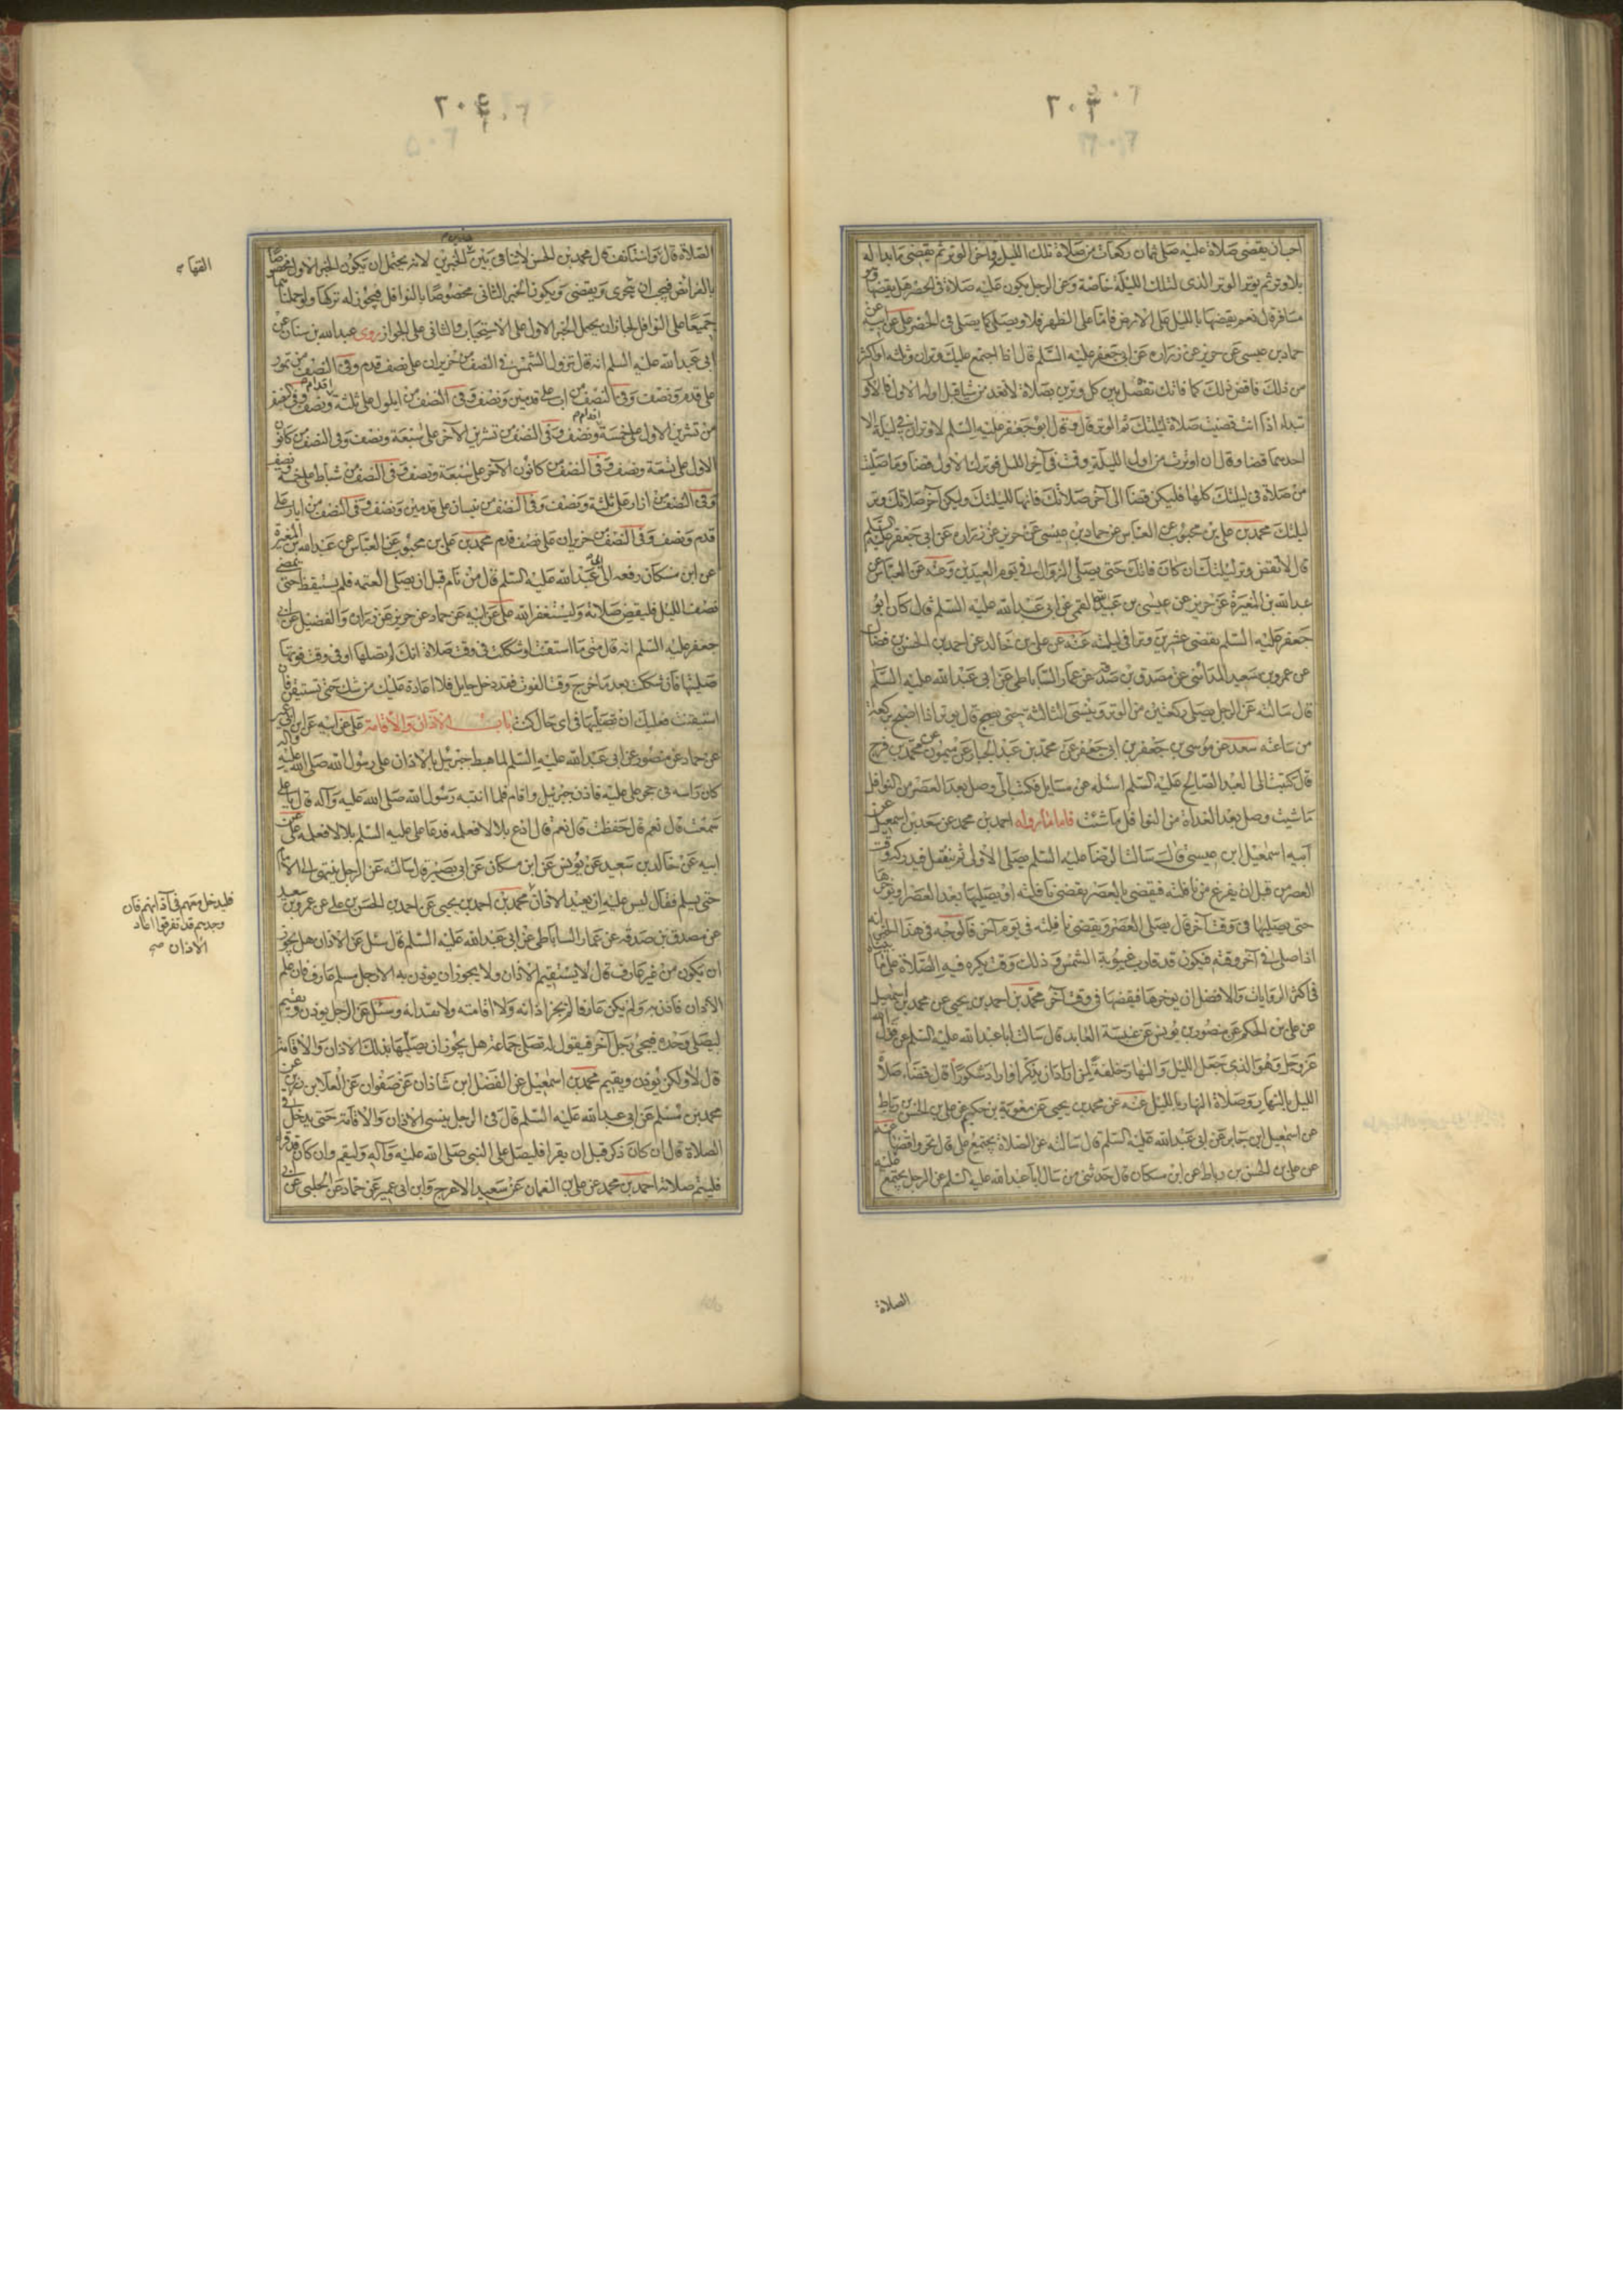 ٢٠٣
احب ان يقضى صلاة عليه صلى ثمان ركعات من صلاة تلك الليل واخر الوتر ثم يقضى ما بدا له
بلا وتر ثم يوتر الوتر الذى لتلك الليلة خاصة وعن الرجل يكون عليه صلاة فى الحضر هل يقضيها وهو
مسافر قال نعم يقضيها بالليل على الارض فاما على الظهر فلا ويصلى كما يصلى فى الحضر على عن ابيه عن
حماد بن عيسى عن حريز عن زرارة عن ابى جعفر عليه السلم قال اذا اجتمع عليك وتران وثلثه او اكثر
من ذلك فاقض ذلك كما فاتك تفصل بين كل وترين بصلاة لا تقدمن شيا قبل اوله الاول فالاول
تبدا اذا انت قضيت صلاة ليلتك ثم الوتر قال وقال ابو جعفر عليه السلم لا وتران فى ليلة الا
احدهما قضا وقال ان اوترت من اول الليلة وقمت فى آخر الليل فوترك الاول قضا وما صليت
من صلاة فى ليلتك كلها فليكن قضا الى آخر صلاتك فانها لليلتك وليكن آخر صلاتك وتر
ليلتك محمد بن على بن محبوب عن العباس عن حماد بن عيسى عن حريز عن زرارة عن ابى جعفر عليه السلم
قال لا تقض وتر ليلتك ان كان فاتك حتى يصلى الزوال فى يوم العيدين وعنه عن العباس عن
عبد الله بن المغيرة عن حريز عن عيسى بن عبد الله القمى عن ابى عبد الله عليه السلم قال كان ابو
جعفر عليه السلم يقضى عشرين وترا فى ليلته عنه عن على بن خالد عن احمد بن الحسن بن فضال
عن عمرو بن سعيد المدائنى عن مصدق بن صدقة عن عمار الساباطى عن ابى عبد الله عليه السلم
قال سالته عن الرجل يصلى ركعتين من الوتر وينسى الثالثة حتى يصبح قال يوتر اذا اصبح بركعة
من ساعته سعد عن موسى بن جعفر بن ابى جعفر عن محمد بن عبد الجبار عن ميمون عن محمد بن فرج
قال كتبت الى العبد الصالح عليه السلم اسئله عن مسايل فكتب الى وصل بعد العصر من النوافل
ما شيت وصل بعد الغداة من النوافل ما شئت فاما ما رواه احمد بن محمد عن سعد بن اسمعيل عن
ابيه اسمعيل ابن عيسى قال سالت الرضا عليه السلم صلى الاولى ثم يتنفل فيدركه وقت
العصر من قبل ان يفرغ من نافلته فيقضى بالعصر يقضى نافلته او يصليها بعد العصر او يؤخرها
حتى يصليها فى وقت آخر قال يصلى العصر ويقضى نافلته فى يوم آخر فالوجه فى هذا الخبر انه
اذا صلى فى آخر وقته فيكون قد قارب غيبوبة الشمس وذلك وقت يكره فيه الصلاة على ما بيناه
فى اكثر الروايات والافضل ان يوخرها فيقضيها فى وقت آخر محمد بن احمد بن يحيى عن محمد بن اسمعيل
عن على بن الحكم عن منصور بن يونس عن عنبسة العابد قال سالت ابا عبد الله عليه السلم عن قول الله
عز وجل وهو الذى جعل الليل والنهار خلفة لمن اراد ان يذكر او اراد شكورا قال قضاء صلاة
الليل بالنهار وصلاة النهار بالليل عنه عن محمد بن يحيى عن معوية بن حكيم عن على بن الحسن بن رباط
عن اسمعيل ابن جابر عن ابى عبد الله عليه السلم قال سالته عن الصلاة يجتمع على قال تحر واقضها عنه
عن على بن الحسن بن رباط عن ابن مسكان قال حدثنى من سال ابا عبد الله عليه السلم عن الرجل يجتمع عليه
الصلاة
٢٠٤
الصلاة قال قال محمد بن الحسن لا تنافى بين الخبرين لانه يحتمل ان يكون الخبر الاول مخصوصا
بالفرائض فيجب ان يتحرى ويقضى ويكون الخبر الثانى مخصوصا بالنوافل فيجوز له تركها ولو حملناهما
جميعا على النوافل لجاز ان يحمل الخبر الاول على الاستحباب والثانى على الجواز روى عبد الله بن سنان عن
ابى عبد الله عليه السلم انه قال تزول الشمس فى النصف من حزيران على نصف قدم وفى النصف من تموز
على قدم ونصف وفى النصف من اب على قدمين ونصف وفى النصف من ايلول على ثلثة اقدام ونصف وفى النصف
من تشرين الاول على خمسة اقدام ونصف وفى النصف من تشرين الآخر على سبعة ونصف وفى النصف من كانون
الاول على تسعة ونصف وفى النصف من كانون الآخر على سبعة ونصف وفى النصف من شباط على خمسة ونصف
وفى النصف من اذار على ثلثة ونصف وفى النصف من نيسان على قدمين ونصف وفى النصف من ايار على
قدم ونصف وفى النصف من حزيران على نصف قدم محمد بن على بن محبوب عن العباس عن عبد الله بن المغيرة
عن ابن مسكان رفعه الى ابى عبد الله عليه السلم قال من نام قبل ان يصلى العتمه فلم يستيقظ حتى يمضى
نصف الليل فليقض صلاته وليستغفر الله على عن ابيه عن حماد عن حريز عن زرارة والفضيل عن ابى
جعفر عليه السلم انه قال متى ما استيقنت او شككت فى وقت صلاة انك لم تصلها او فى وقت فوتها
صليتها فان شككت بعد ما خرج وقت الفوت فقد دخل حايل فلا اعادة عليك من شك حتى تستيقن فان
استيقنت فعليك ان تصليها فى اى حال كنت باب الاذان والاقامة على عن ابيه عن ابن ابى عمير
عن حماد عن منصور عن ابى عبد الله عليه السلم لما هبط جبرئيل بالاذان على رسول الله صلى الله عليه وآله
كان راسه فى حجر على عليه فاذن جبرئيل واقام فلما انتبه رسول الله صلى الله عليه وآله قال يا على
سمعت قال نعم قال حفظت قال نعم قال ادع بلالا فعلمه فدعا على عليه السلم بلالا فعلمه على عن
ابيه عن خالد بن سعيد عن يونس عن ابن مسكان عن ابى بصير قال سالته عن الرجل ينتهى الى الامام
حتى يسلم فقال ليس عليه ان يعيد الاذان محمد بن احمد بن يحيى عن احمد بن الحسن بن على عن عمرو بن سعيد
عن مصدق بن صدقه عن عمار الساباطى عن ابى عبد الله عليه السلم قال سئل عن الاذان هل يجوز
ان يكون من غير عارف قال لا يستقيم الاذان ولا يجوز ان يوذن به الا رجل مسلم عارف فان علم
الاذان فاذن به ولم يكن عارفا لم يجز اذانه ولا اقامته ولا يقتدا به وسئل عن الرجل يوذن ويقيم
ليصلى وحده فيجئ رجل آخر فيقول له تصلى جماعة هل يجوز ان يصليها بذلك الاذان والاقامة
قال لا ولكن يوذن ويقيم محمد بن اسمعيل عن الفضل ابن شاذان عن صفوان عن العلا بن رزين عن
محمد بن مسلم عن ابى عبد الله عليه السلم قال فى الرجل ينسى الاذان والاقامة حتى يدخل فى
الصلاة قال ان كان ذكر قبل ان يقرا فليصل على النبى صلى الله عليه وآله وليقم وان كان قد قرا
فليتم صلاته احمد بن محمد عن على بن النعمان عن سعيد الاعرج وابن ابى عمير عن حماد عن الحلبى عن ابى
فليدخل معهم فى آذانهم فان
وجدهم قد تفرقوا اعاد
الاذان صح